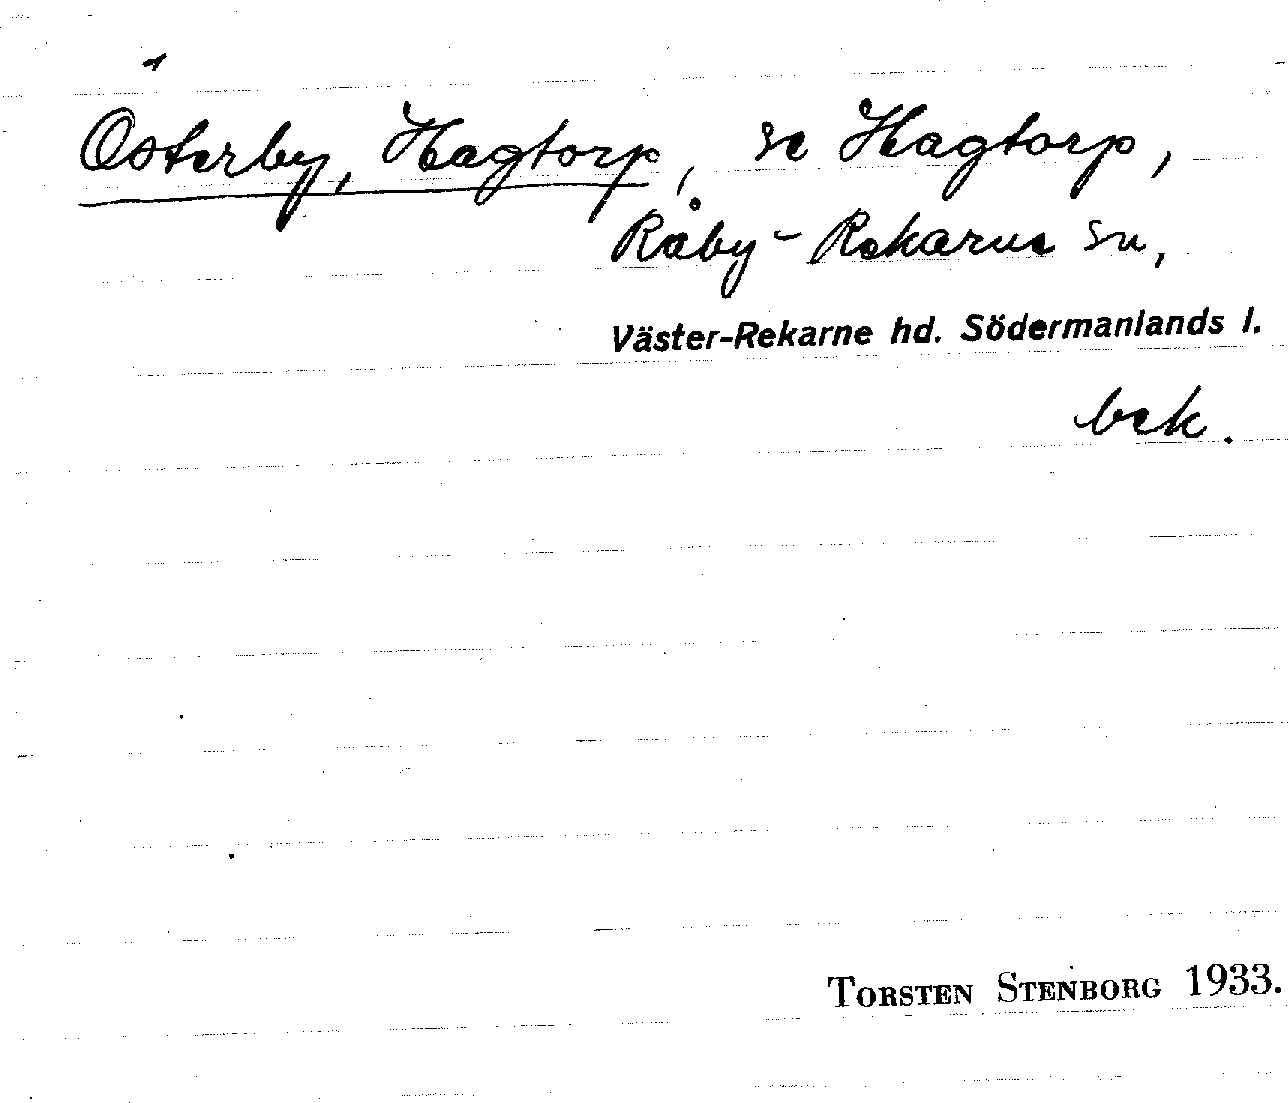 Österby, Hagtorp, se Hagtorp,
Råby-Rekarne sn,
Väster-Rekarne hd. Södermanlands l.
bek.
TORSTEN STENBORG 1933.